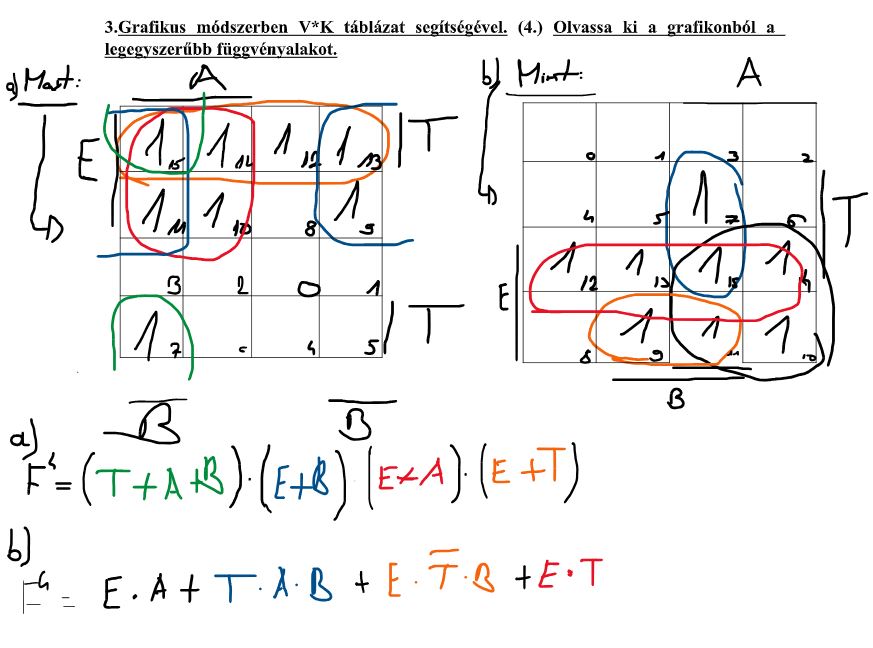 3.Grafikus módszerben V*K táblázat segítségével. (4.) Olvassa ki a grafikonból a
legegyszerűbb függvényalakot.
a) Maxt: A
b) Mint: A
E 1 15 1 14 1 12 1 13 T
1 11 1 10 8 1 9
3 2 0 1
1 7 6 4 5 T
B B
0 1 3 2
4 5 1 7 6 T
E 1 12 1 13 1 15 1 14
8 1 9 1 11 1 10
B
a)
F⁴ = (T+A+B)·(E+B)·(E+A)·(E+T)
b)
F⁴ = E·A + T·A·B + E·T̅·B + E·T